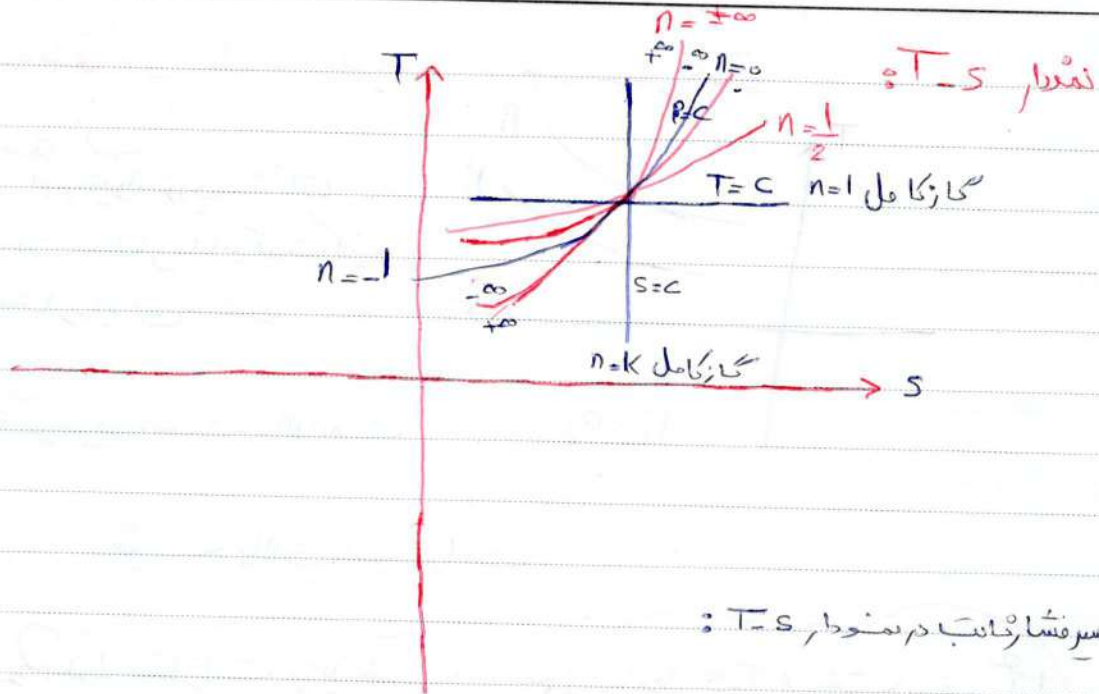 نمودار T-S :
n = ±∞
+∞ -∞ n=0
P=C
n = 1/2
T
T=C n=1 گاز کامل
n = -1
S=C
-∞
+∞
n=k گاز کامل
S
سیر فشار ثابت در نمودار T-S :